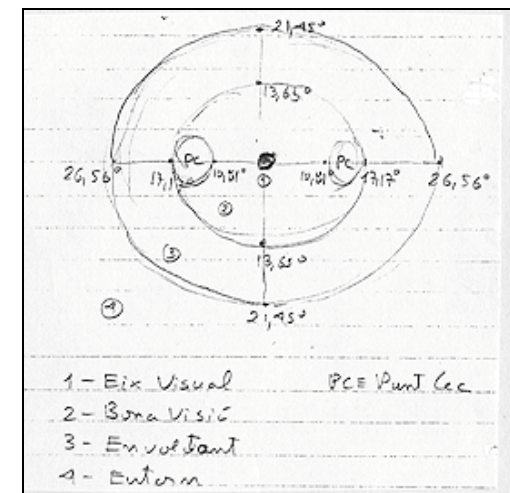 21,45°
13,65°
PC PC
26,56° 17,1 10,81° 1 10,81° 17,17° 26,56°
2
13,65°
3
4
21,45°
1 - Eix Visual PC ≡ Punt Cec
2 - Bona Visió
3 - Envoltant
4 - Entorn